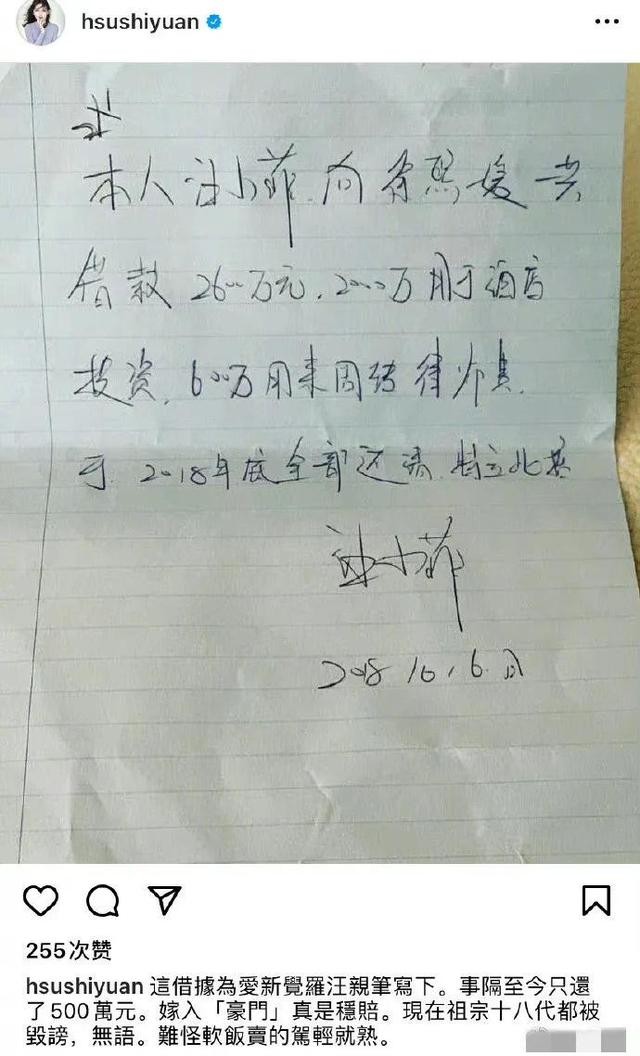 hsushiyuan
本人汪小菲向徐熙媛共
借款2600万元,2000万用于酒店
投资,600万用来周转
于2018年底全部还清.特立此据
汪小菲
2018
255次赞
hsushiyuan 這借據為愛新覺羅汪親筆寫下。事隔至今只還
了500萬元。嫁入「豪門」真是穩賠。現在祖宗十八代都被
毀謗，無語。難怪軟飯賣的駕輕就熟。